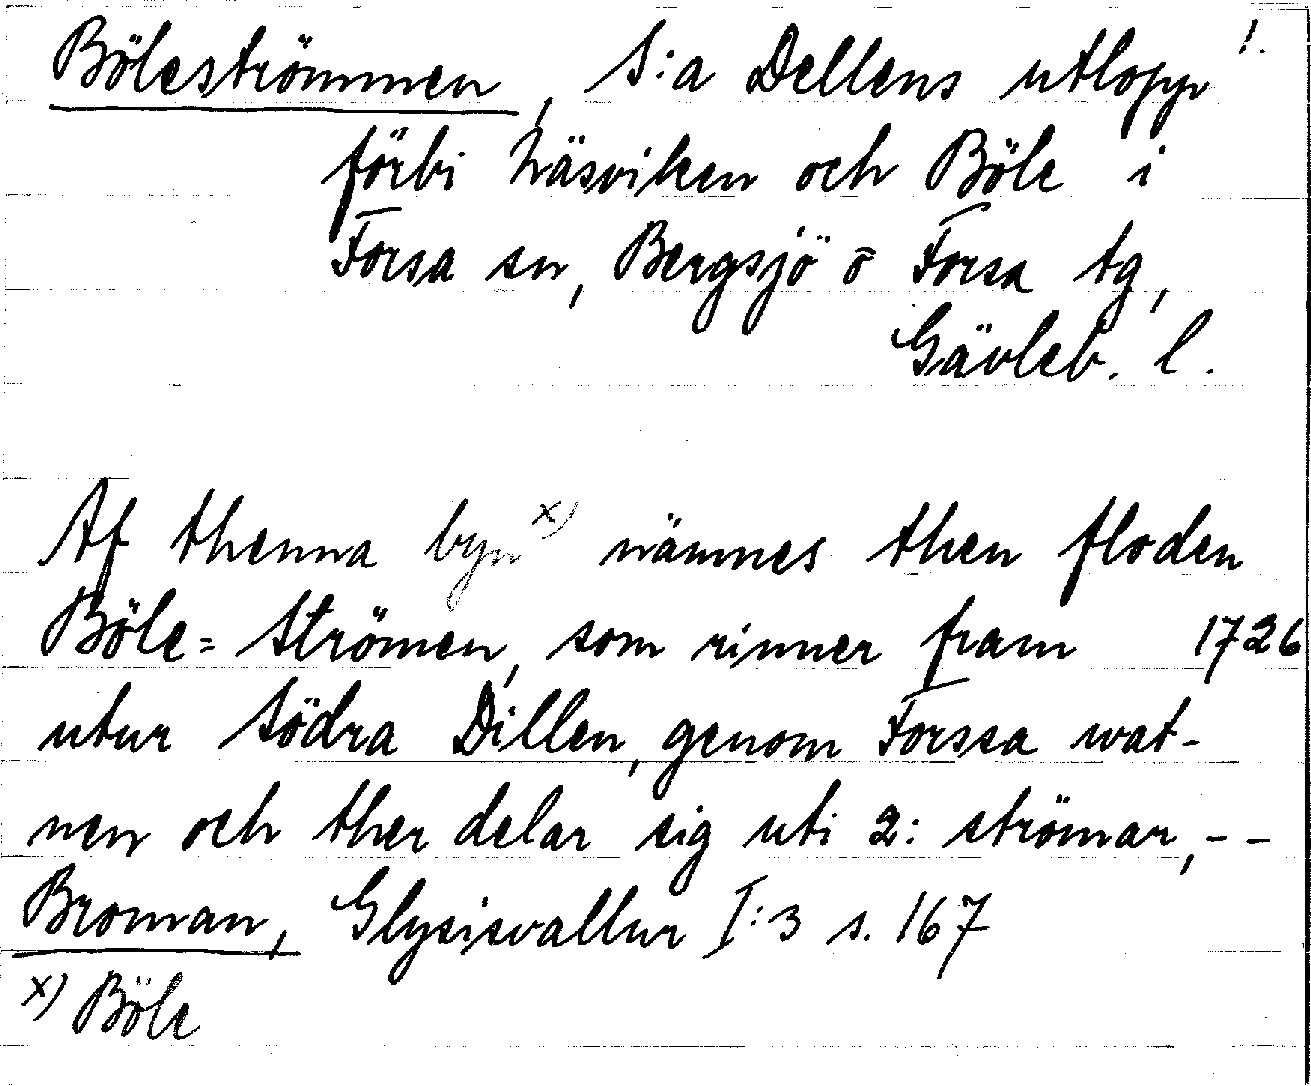 Böleströmmen, S:a Dellens utlopp 1.
förbi Näsviken och Böle i
Forsa sn, Bergsjö o Forsa tg,
Gävleb. l.
Af thenna byn x) nämnes then floden
Böle= Strömen, som rinner fram 1726
utur Södra Dillen, genom Forssa wat-
nen och ther delar sig uti 2: strömar, - -
Broman, Glysisvallur I:3 s. 167
x) Böle